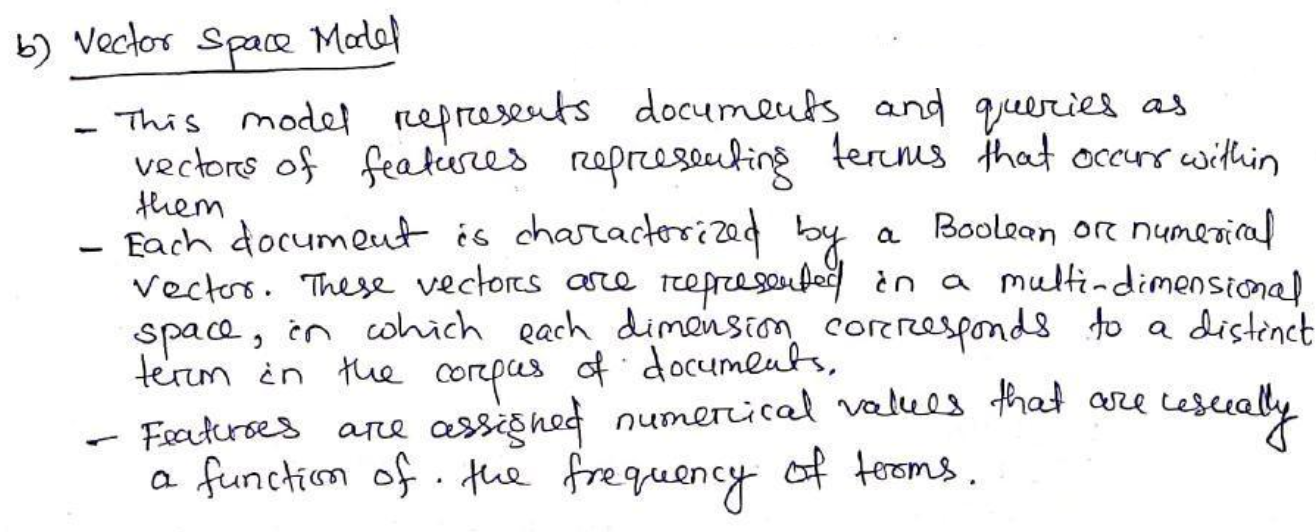 b) Vector Space Model
- This model represents documents and queries as
vectors of features representing terms that occur within
them
- Each document is charactorized by a Boolean or numerical
vector. These vectors are represented in a multi-dimensional
space, in which each dimension corresponds to a distinct
term in the corpus of documents.
- Features are assigned numerical values that are usually
a function of . the frequency of terms.